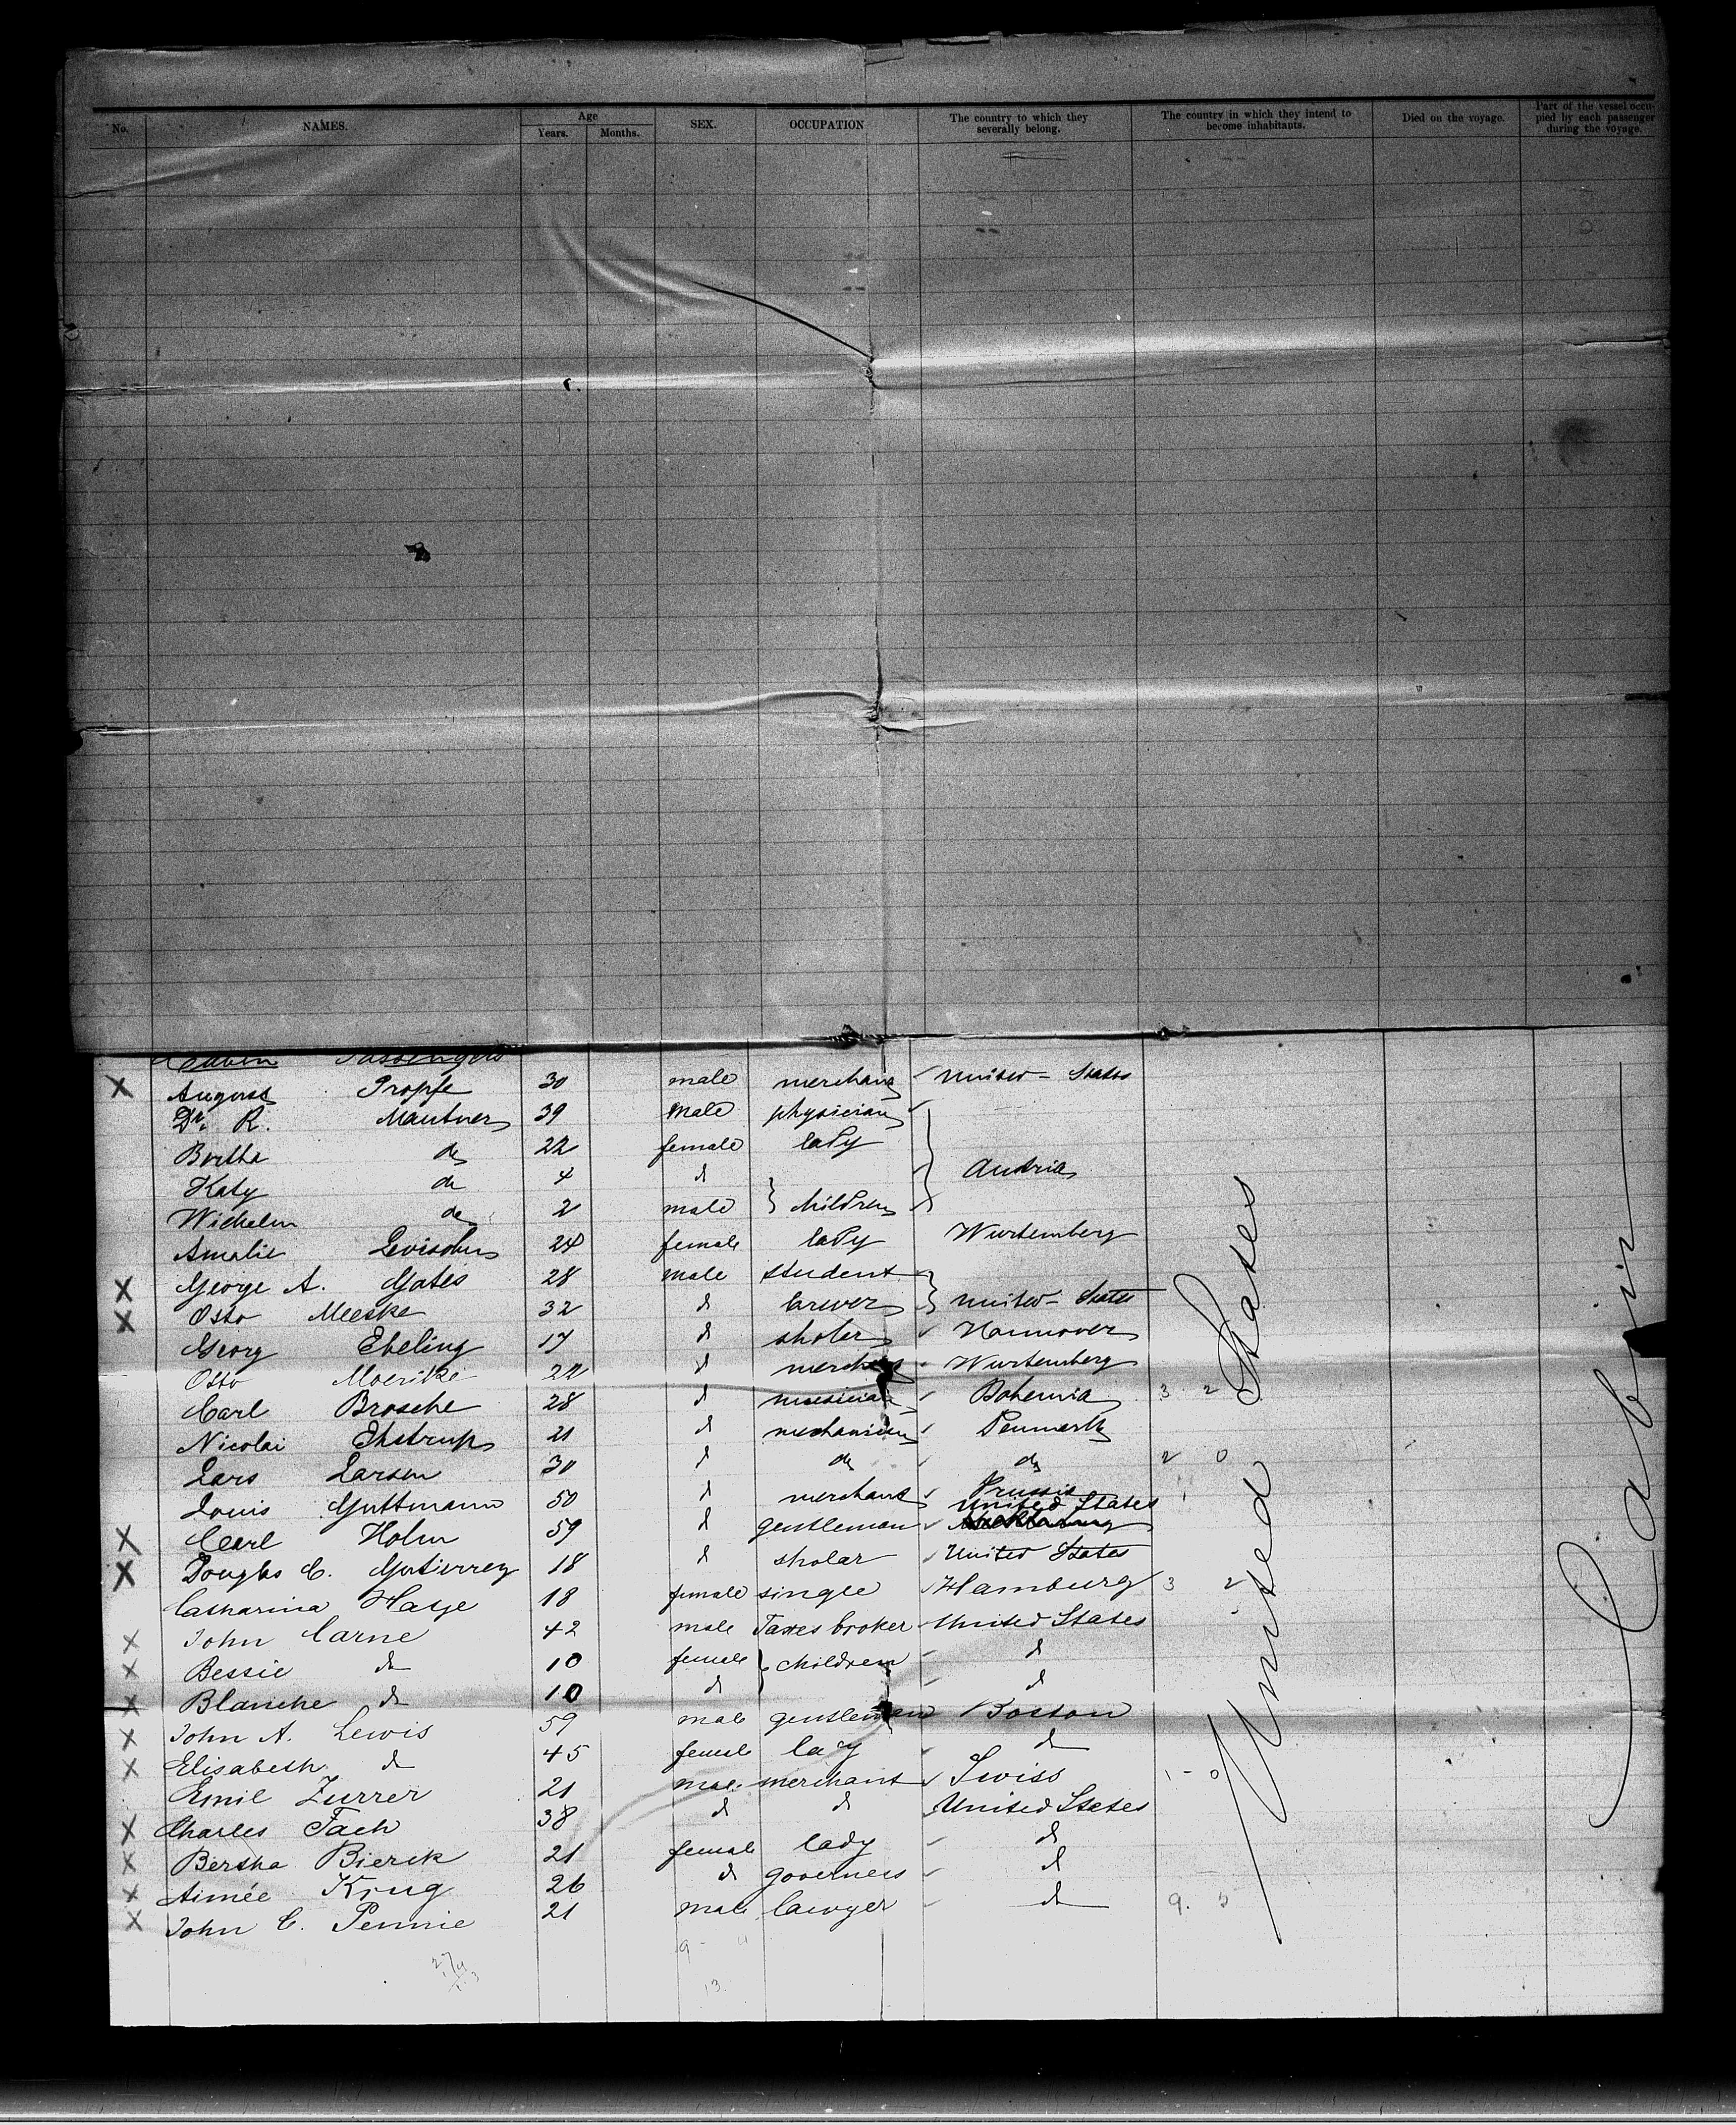 No. NAMES. Age Years. Months. SEX. OCCUPATION The country to which they severally belong. The country in which they intend to become inhabitants. Died on the voyage. Part of the vessel occupied by each passenger during the voyage.
Cabin Passengers
X August Propfe 30 male merchant United-States
Dr. R. Mautner 39 male physician
Bertha do 22 female lady
Katy do 4 d Austria
Wilhelm do 2 male children
Amalie 24 female lady Wurtemberg
X George A. Gates 28 male student
X Otto Meeske 32 d brewer United-States
Georg Ebeling 17 d sholar Hannover
Otto Moerike 22 d merchant Wurtemberg
Carl Brosche 28 d musician Bohemia 3 2
Nicolai Ehstrup 21 d mechanician Denmark
Lars Larsen 30 d do do 2 0
Louis Guttmann 50 d merchant Prussia
X Carl Holm 59 d gentleman United States
X Douglas C. Gutierrez 18 d sholar United States
Catharina Hasje 18 female single Hamburg 3 2
X John Carne 42 male Taxes broker United States
X Bessie do 10 female children d
X Blanche do 10 d d
X John A. Lewis 59 male gentleman Boston
X Elisabeth d 45 female lady d
Emil Zurrer 21 male merchant Swiss 1 - 0
X Charles Tach 38 d d United States
X Bertha Bierck 21 female lady d
X Aimée King 26 d governess d
X John C. Pennie 21 male lawyer d 9. 5
United States
Cabin
9 - 4
13